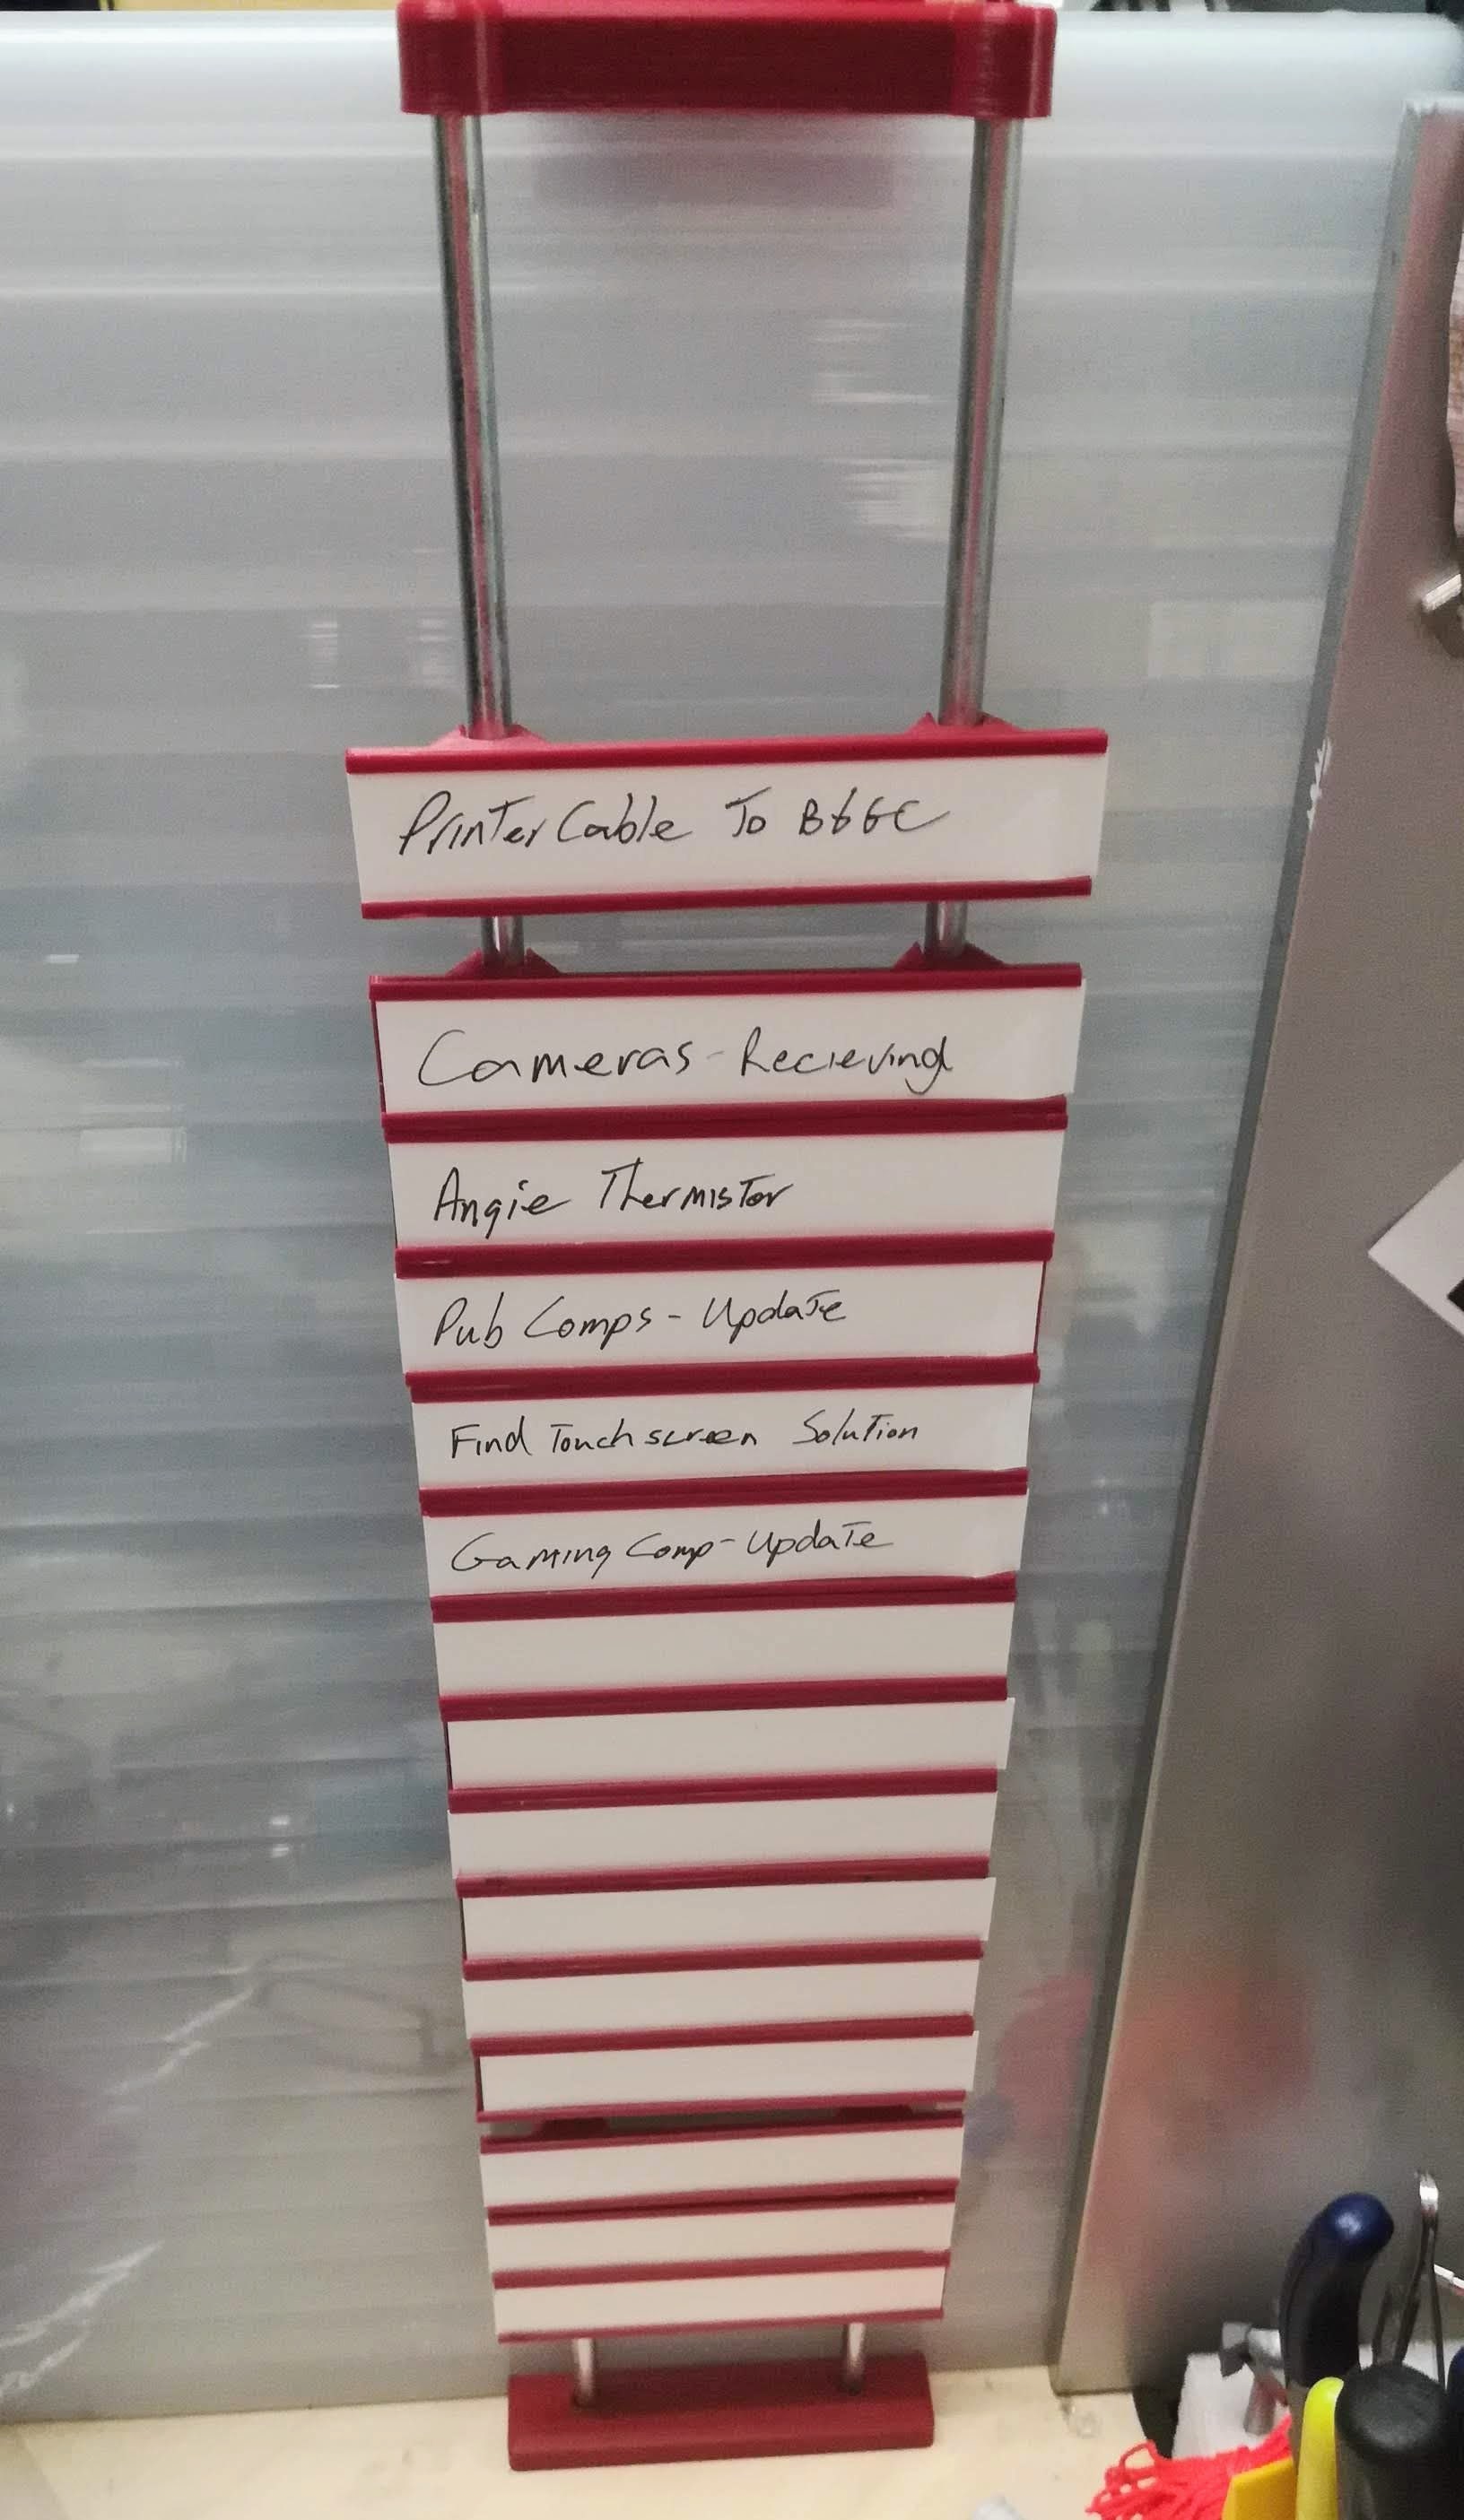 Printer Cable To
Cameras - Recieving
Angie Thermistor
Pub Comps - Update
Find Touchscreen Solution
Gaming Comp - Update